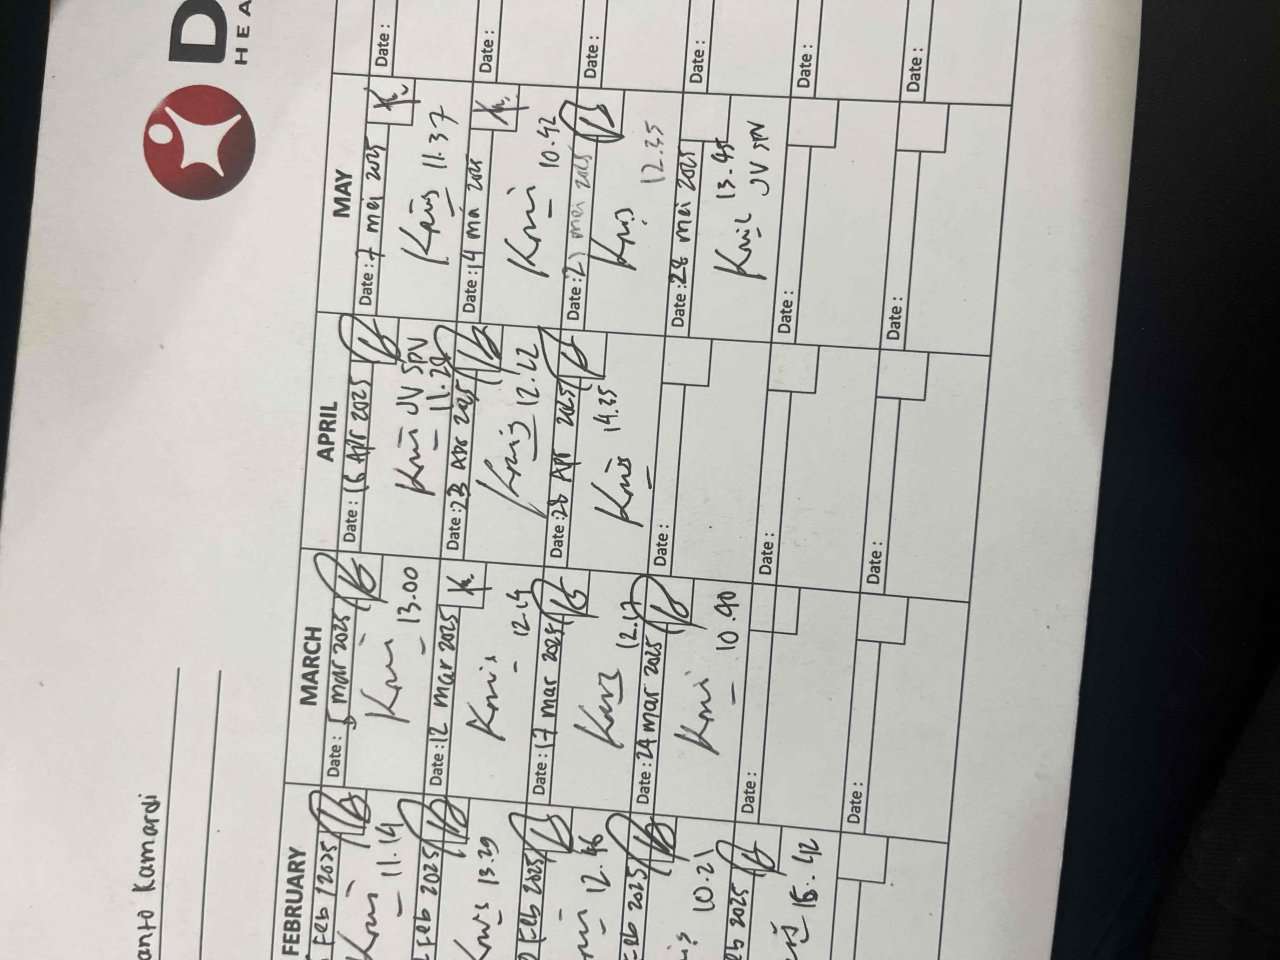 D
HEA
anto Kamardi
FEBRUARY
Feb 2025
11.14
Feb 2025
Kris 13.29
Feb 2025
12.46
Feb 2025
10.21
eb 2025
MARCH
Date: 5 mar 2025
Kris
13.00
Date: 12 mar 2025
Kris
12.14
Date: 17 mar 2025
Kris 12.17
Date: 24 mar 2025
Kris
10.40
Date:
Date:
APRIL
Date: 16 Apr 2025
Kris JV SPV
11.20
Date: 23 Apr 2025
Kris 12.22
Date: 28 Apr 2025
Kris 14.35
Date:
Date:
Date:
MAY
Date: 7 mei 2025
Kris 11.37
Date: 14 mei 2025
Kris 10.42
Date: 21 mei 2025
Kris 12.35
Date: 28 mei 2025
Kris 13.45
JV SPV
Date:
Date:
Date:
Date:
Date:
Date:
Date:
Date: